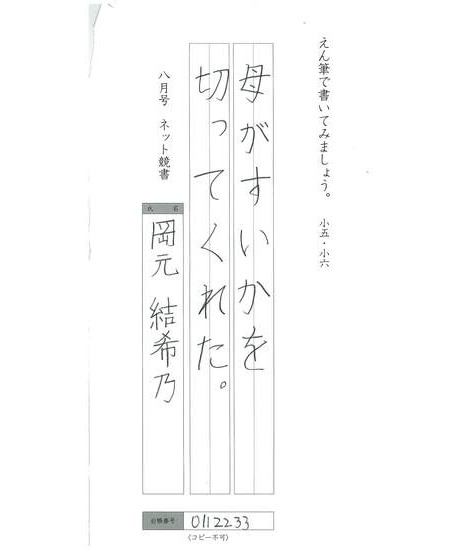 えん筆で書いてみましょう。 小五・小六
母がすいかを
切ってくれた。
八月号 ネット競書
氏 名
岡元 結希乃
会員番号 0112233
(コピー不可)